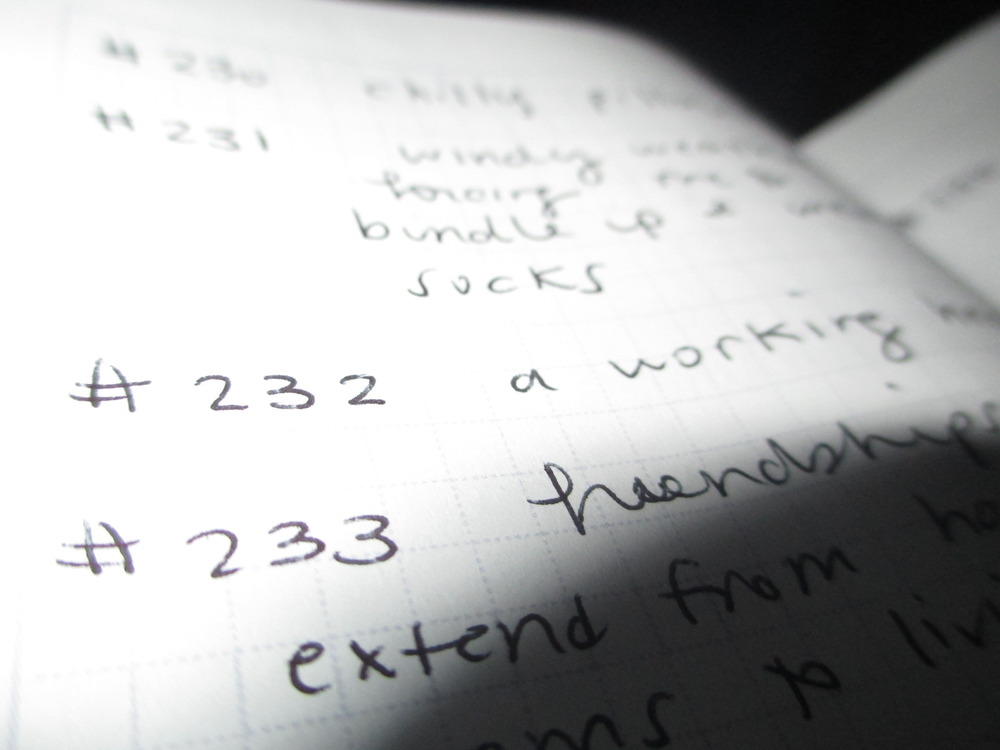 # 230 chilly
# 231 windy
forcing me to
bundle up &
socks
# 232 a working
# 233 friendships
extend from
to